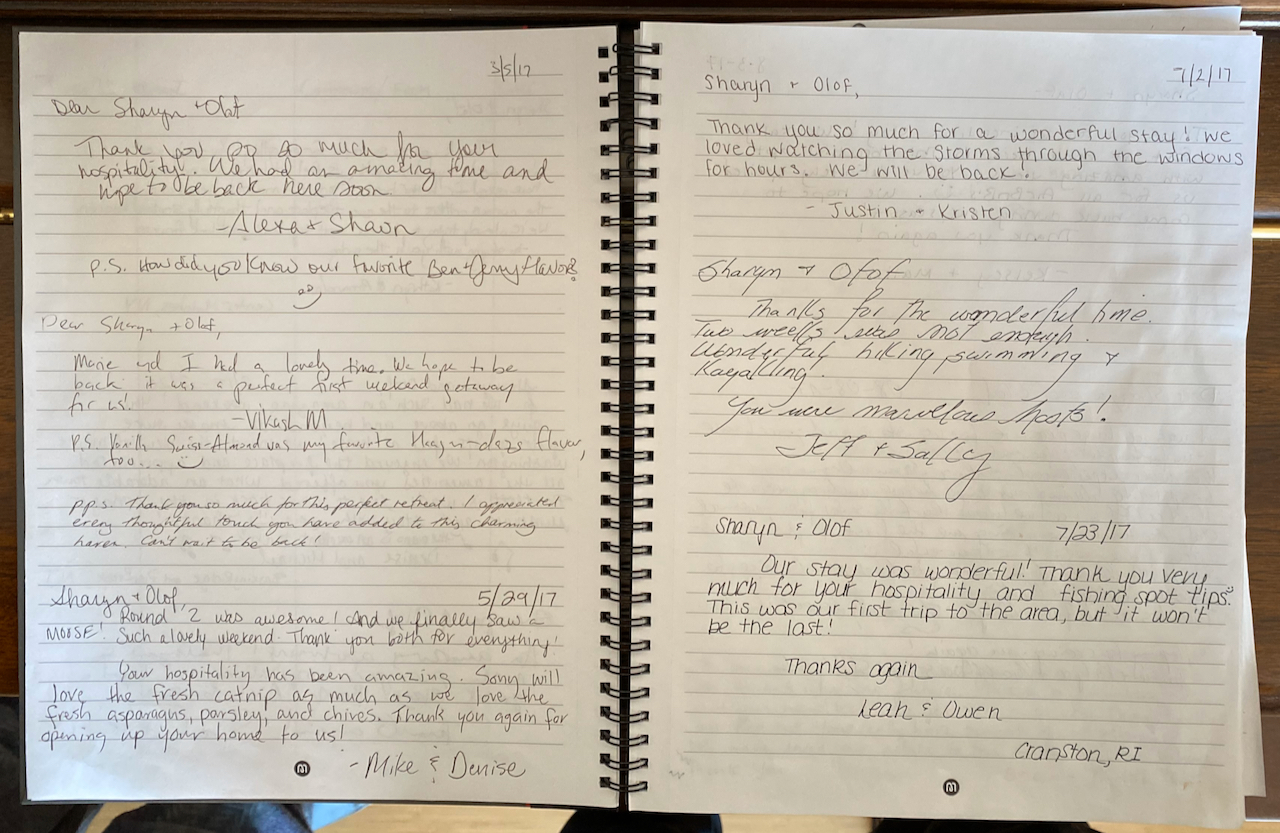 3/5/17
Dear Sharyn + Olof
Thank you so so much for your
hospitality! We had an amazing time and
hope to be back here soon
-Alexa + Shawn
P.S. How did you know our favorite Ben + Jerry flavor?
Dear Sharyn + Olof,
Marie and I had a lovely time. We hope to be
back it was a perfect first weekend getaway
for us!
-Vikash M
P.S. Vanilla Swiss-Almond was my favorite Haagen-dazs flavor,
too...
p.p.s. Thank you so much for this perfect retreat. I appreciated
every thoughtful touch you have added to this charming
haven. Can't wait to be back!
Sharyn + Olof, 5/29/17
Round 2 was awesome! And we finally saw a
MOOSE! Such a lovely weekend. Thank you both for everything!
Your hospitality has been amazing. Sony will
love the fresh catnip as much as we love the
fresh asparagus, parsley, and chives. Thank you again for
opening up your home to us!
-Mike & Denise
m
7/2/17
Sharyn + Olof,
Thank you so much for a wonderful stay! We
loved watching the storms through the windows
for hours. We will be back!
- Justin + Kristen
Sharyn + Olof
Thanks for the wonderful time.
Two weeks was not enough.
Wonderful hiking swimming +
Kayakking.
You were marvellous hosts!
Jeff + Sally
Sharyn & Olof 7/23/17
Our stay was wonderful! Thank you very
much for your hospitality and fishing spot tips!
This was our first trip to the area, but it won't
be the last!
Thanks again
Leah & Owen
Cranston, RI
m